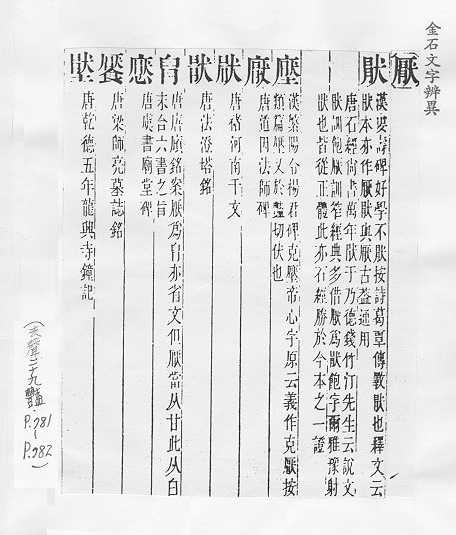 金石文字辨異
厭
猒
漢婁壽碑好學不猒按詩葛覃傳斁猒也釋文云
猒本亦作厭猒與厭古蓋通用
唐石經尚書萬年猒于乃德錢竹汀先生云說文
猒訓飽厭訓笮經典多借厭為猒飽字爾雅豫射
猒也皆從正體此亦石經勝於今本之一證
漢繁陽令楊君碑克壓帝心字原云義作克厭按
類篇壓又於鹽切伏也
唐道因法師碑
唐褚河南千文
唐法澄塔銘
唐唐㢘銘案厭為㠯亦省文但厭當从甘此从白
未合六書之旨
唐虞書廟堂碑
唐梁師亮墓誌銘
唐乾德五年龍興寺鐘記
去聲二十九豔
P.981-
P.982